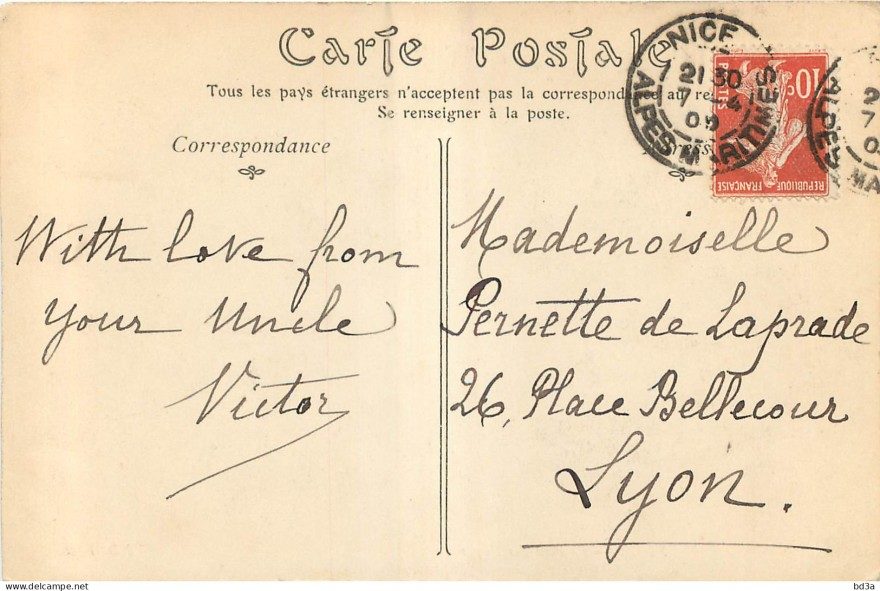 Carte Postale
Tous les pays étrangers n'acceptent pas la correspondance au
Se renseigner à la poste.
Correspondance
With love from
your Uncle
Victor
NICE
21 30
7 -4
09
ALPES MARITIMES
10c
POSTES
REPUBLIQUE FRANÇAISE
Mademoiselle
Pernette de Laprade
26, Place Bellecour
Lyon.
bd3a